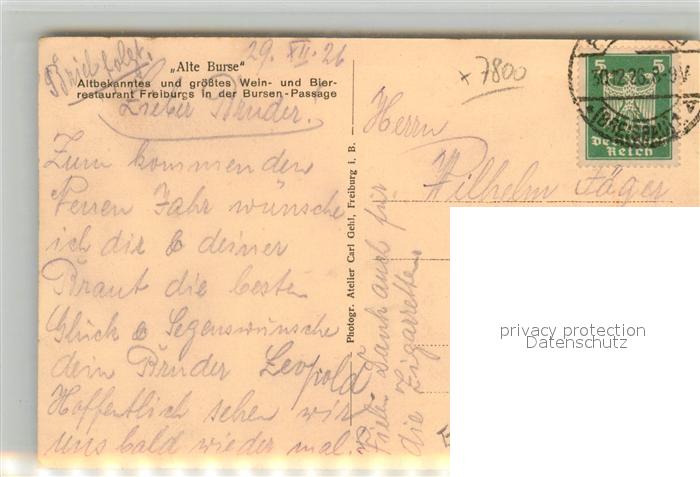 Brief folgt.
29. XII. 26
„Alte Burse"
Altbekanntes und größtes Wein- und Bier-
restaurant Freiburgs in der Bursen-Passage
Lieber Bruder.
Zum kommenden
Neuen Jahr wünsche
ich dir & deiner
Braut die besten
Glück & Segenswünsche
dein Bruder Leopold
Hoffentlich sehen wir
uns bald wieder mal.
Vielen Dank auch für
die Zigarretten.
Photogr. Atelier Carl Gehl, Freiburg i. B.
x 7800
Herrn
Wilhelm Jäger
5 5
30.12.26. 8-9V
(BREISGAU)
Deutsches
Reich
privacy protection
Datenschutz